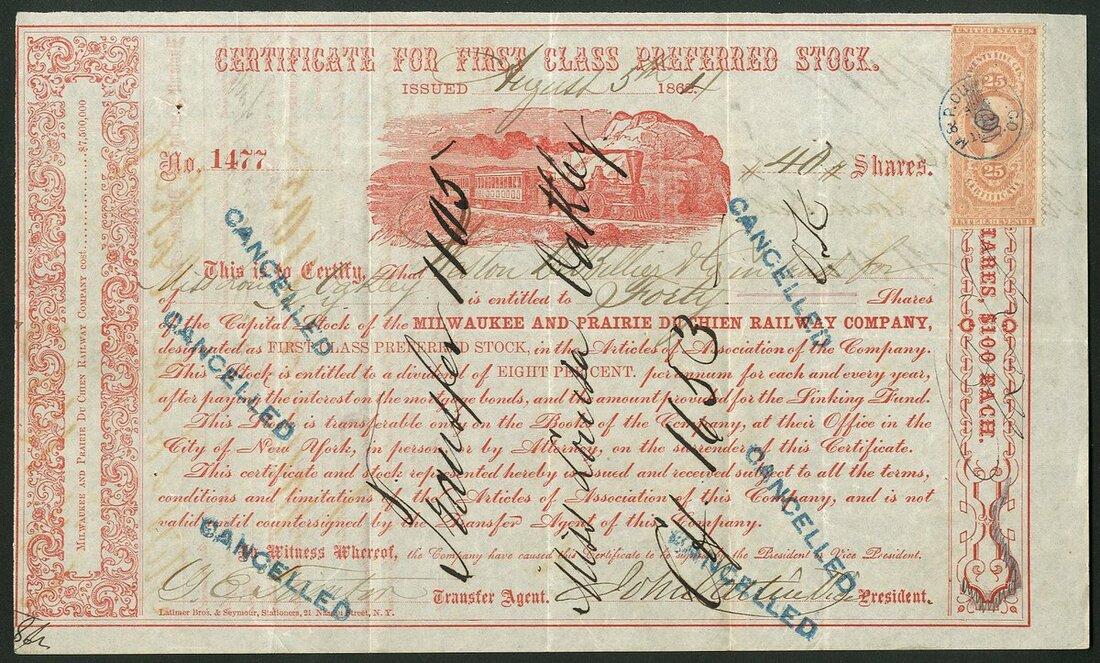 CERTIFICATE FOR FIRST CLASS PREFERRED STOCK.
August 5th
ISSUED 1864
UNITED STATES
25 25
CERTIFICATE
INTER. REVENUE
No. 1477
40 Shares.
This is to Certify, That for
Miss Louisa Oakley
of is entitled to Forty Shares
of the Capital Stock of the MILWAUKEE AND PRAIRIE DU CHIEN RAILWAY COMPANY,
designated as FIRST CLASS PREFERRED STOCK, in the Articles of Association of the Company.
This Stock is entitled to a dividend of EIGHT PER CENT. per annum for each and every year,
after paying the interest on the mortgage bonds, and the amount provided for the Sinking Fund.
This Stock is transferable only on the Books of the Company, at their Office in the
City of New York, in person or by Attorney, on the surrender of this Certificate.
This certificate and stock represented hereby is issued and received subject to all the terms,
conditions and limitations of the Articles of Association of this Company, and is not
valid until countersigned by the Transfer Agent of this Company.
In Witness Whereof, the Company have caused this Certificate to be signed by the President or Vice President.
Transfer Agent. John President.
Latimer Bros. & Seymour, Stationers, 21 Nassau Street, N. Y.
MILWAUKEE AND PRAIRIE DU CHIEN RAILWAY COMPANY cost $7,500,000
SHARES $100 EACH.
Transfer 1105
Miss Louisa Oakley
1653
CANCELLED
CANCELLED
CANCELLED
CANCELLED
CANCELLED
CANCELLED